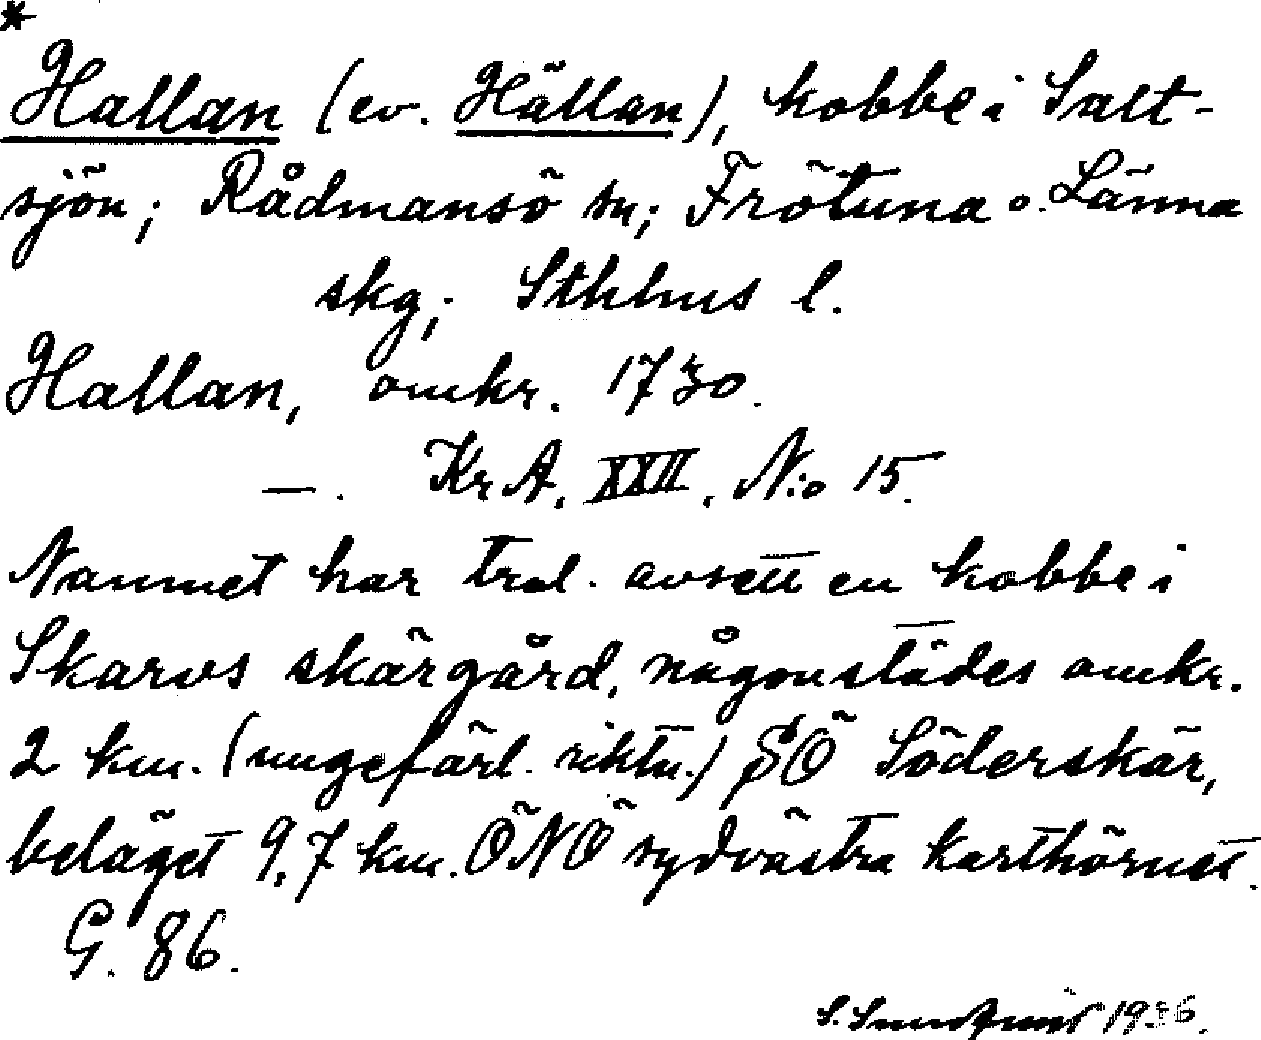 *
Hallan (ev. Hällan), kobbe i Salt-
sjön; Rådmansö sn; Frötuna o. Länna
skg; Sthlms l.
Hallan, omkr. 1730.
—. KrA, XXII, N:o 15.
Namnet har trol. avsett en kobbe i
Skarvs skärgård, någonstädes omkr.
2 km. (ungefärl. riktn.) SÖ Söderskär,
beläget 9,7 km. ÖNÖ sydvästra karthörnet.
G. 86.
S. Sundqvist